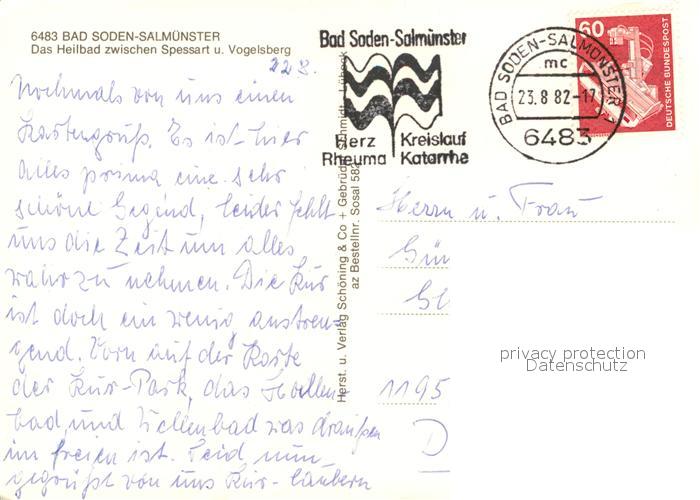 6483 BAD SODEN-SALMÜNSTER
Das Heilbad zwischen Spessart u. Vogelsberg
22 8.
Nochmals von uns einen
Kartengruß. Es ist hier
alles prima eine sehr
schöne Gegend, leider fehlt
uns die Zeit um alles
wahrzu nehmen. Die Kur
ist doch ein wenig anstren=
gend. Vorn auf der Karte
der Kur-Park, das Hallen-
bad und Wellenbad was draußen
im freien ist. Seid nun
gegrüßt von uns Kur-
Herst. u. Verlag Schöning & Co + Gebrüder Schmidt, Lübeck
az Bestellnr. Sosal 582
Bad Soden-Salmünster
Herz Kreislauf
Rheuma Katarrhe
BAD SODEN-SALMÜNSTER 1
mc
23.8.82-17
6483
60
DEUTSCHE BUNDESPOST
Herrn u. Frau
Gün
1195
D
privacy protection
Datenschutz